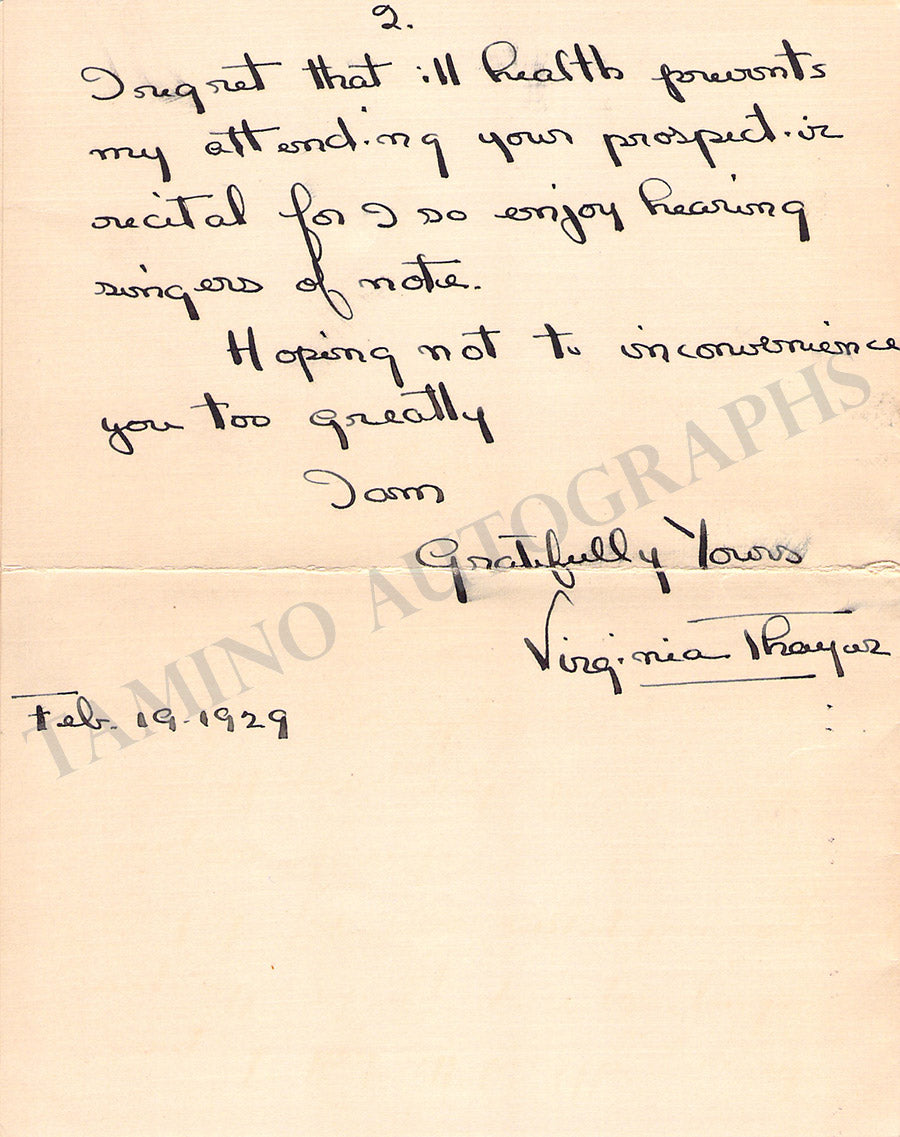 2.
I regret that ill health prevents
my attending your prospective
recital for I so enjoy hearing
singers of note.
Hoping not to inconvenience
you too greatly
I am
Gratefully Yours
Virginia Thayer
Feb. 19-1929
TAMINO AUTOGRAPHS